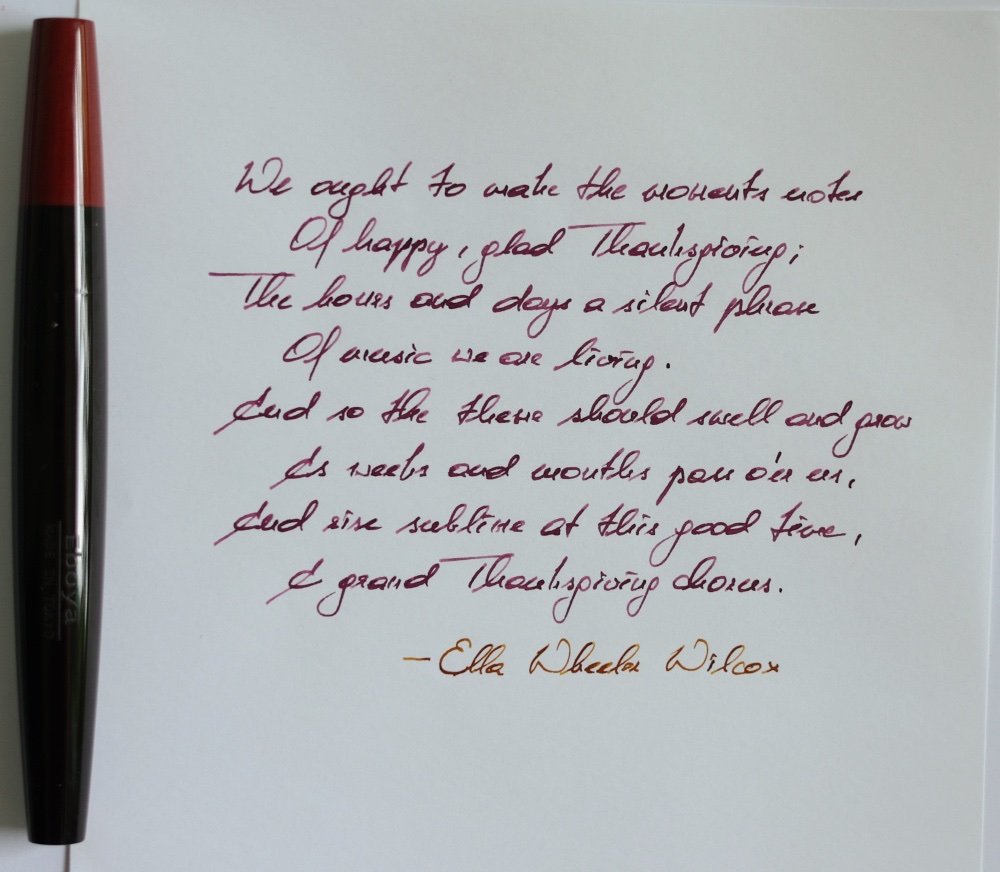 We ought to make the moments notes
Of happy, glad Thanksgiving;
The hours and days a silent phrase
Of music we are living.
And so the theme should swell and grow
As weeks and months pass o'er us,
And rise sublime at this good time,
A grand Thanksgiving chorus.
- Ella Wheeler Wilcox
Eboya
MADE IN TOKYO